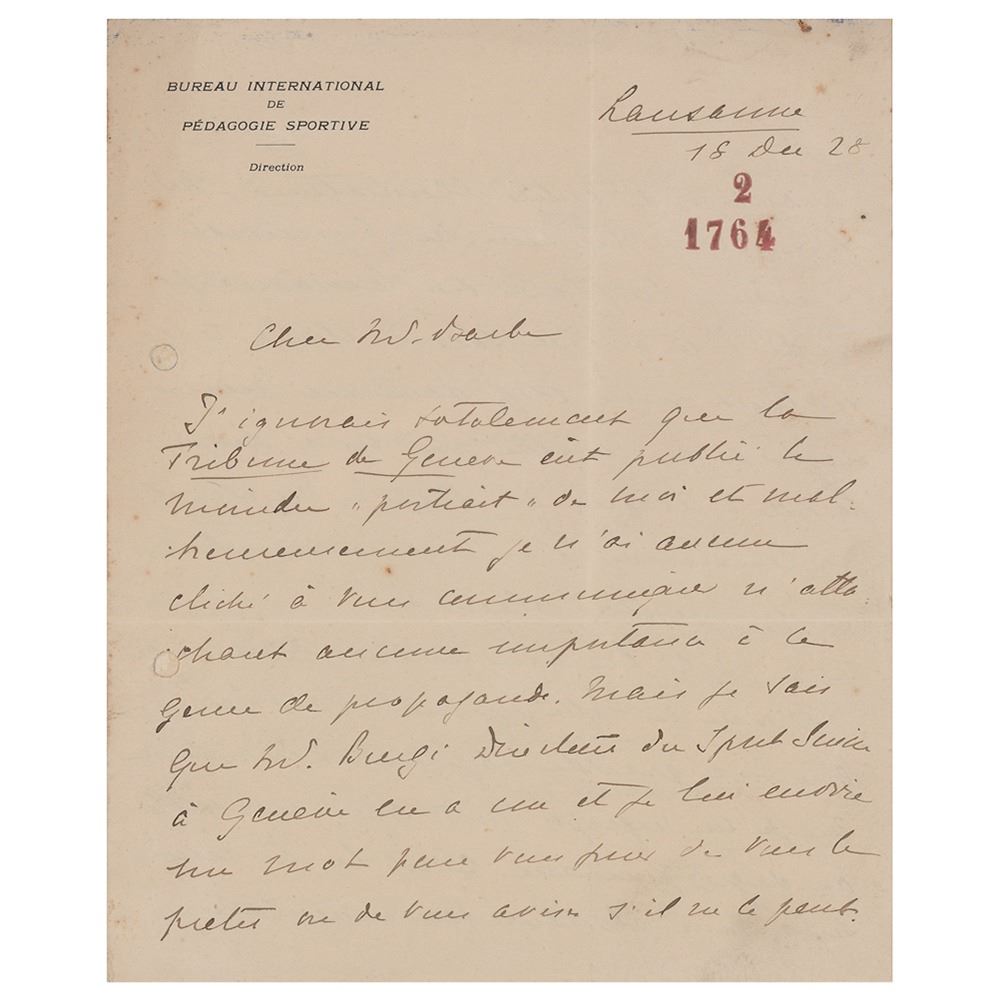 BUREAU INTERNATIONAL
DE
PÉDAGOGIE SPORTIVE
Direction
Lausanne
18 Dec 28
2
1764
Cher M.
J'ignorais totalement que la
Tribune de Genève eut publié le
moindre "portrait" de moi et mal-
heureusement je n'ai aucun
cliché à vous communiquer n'atta
chant aucune importance à ce
genre de propagande. Mais je sais
que M. Burgi Directeur du Sport Suisse
à Genève en a un et je lui envoie
un mot pour vous prier de vous le
prêter ou de vous aviser s'il ne le peut.